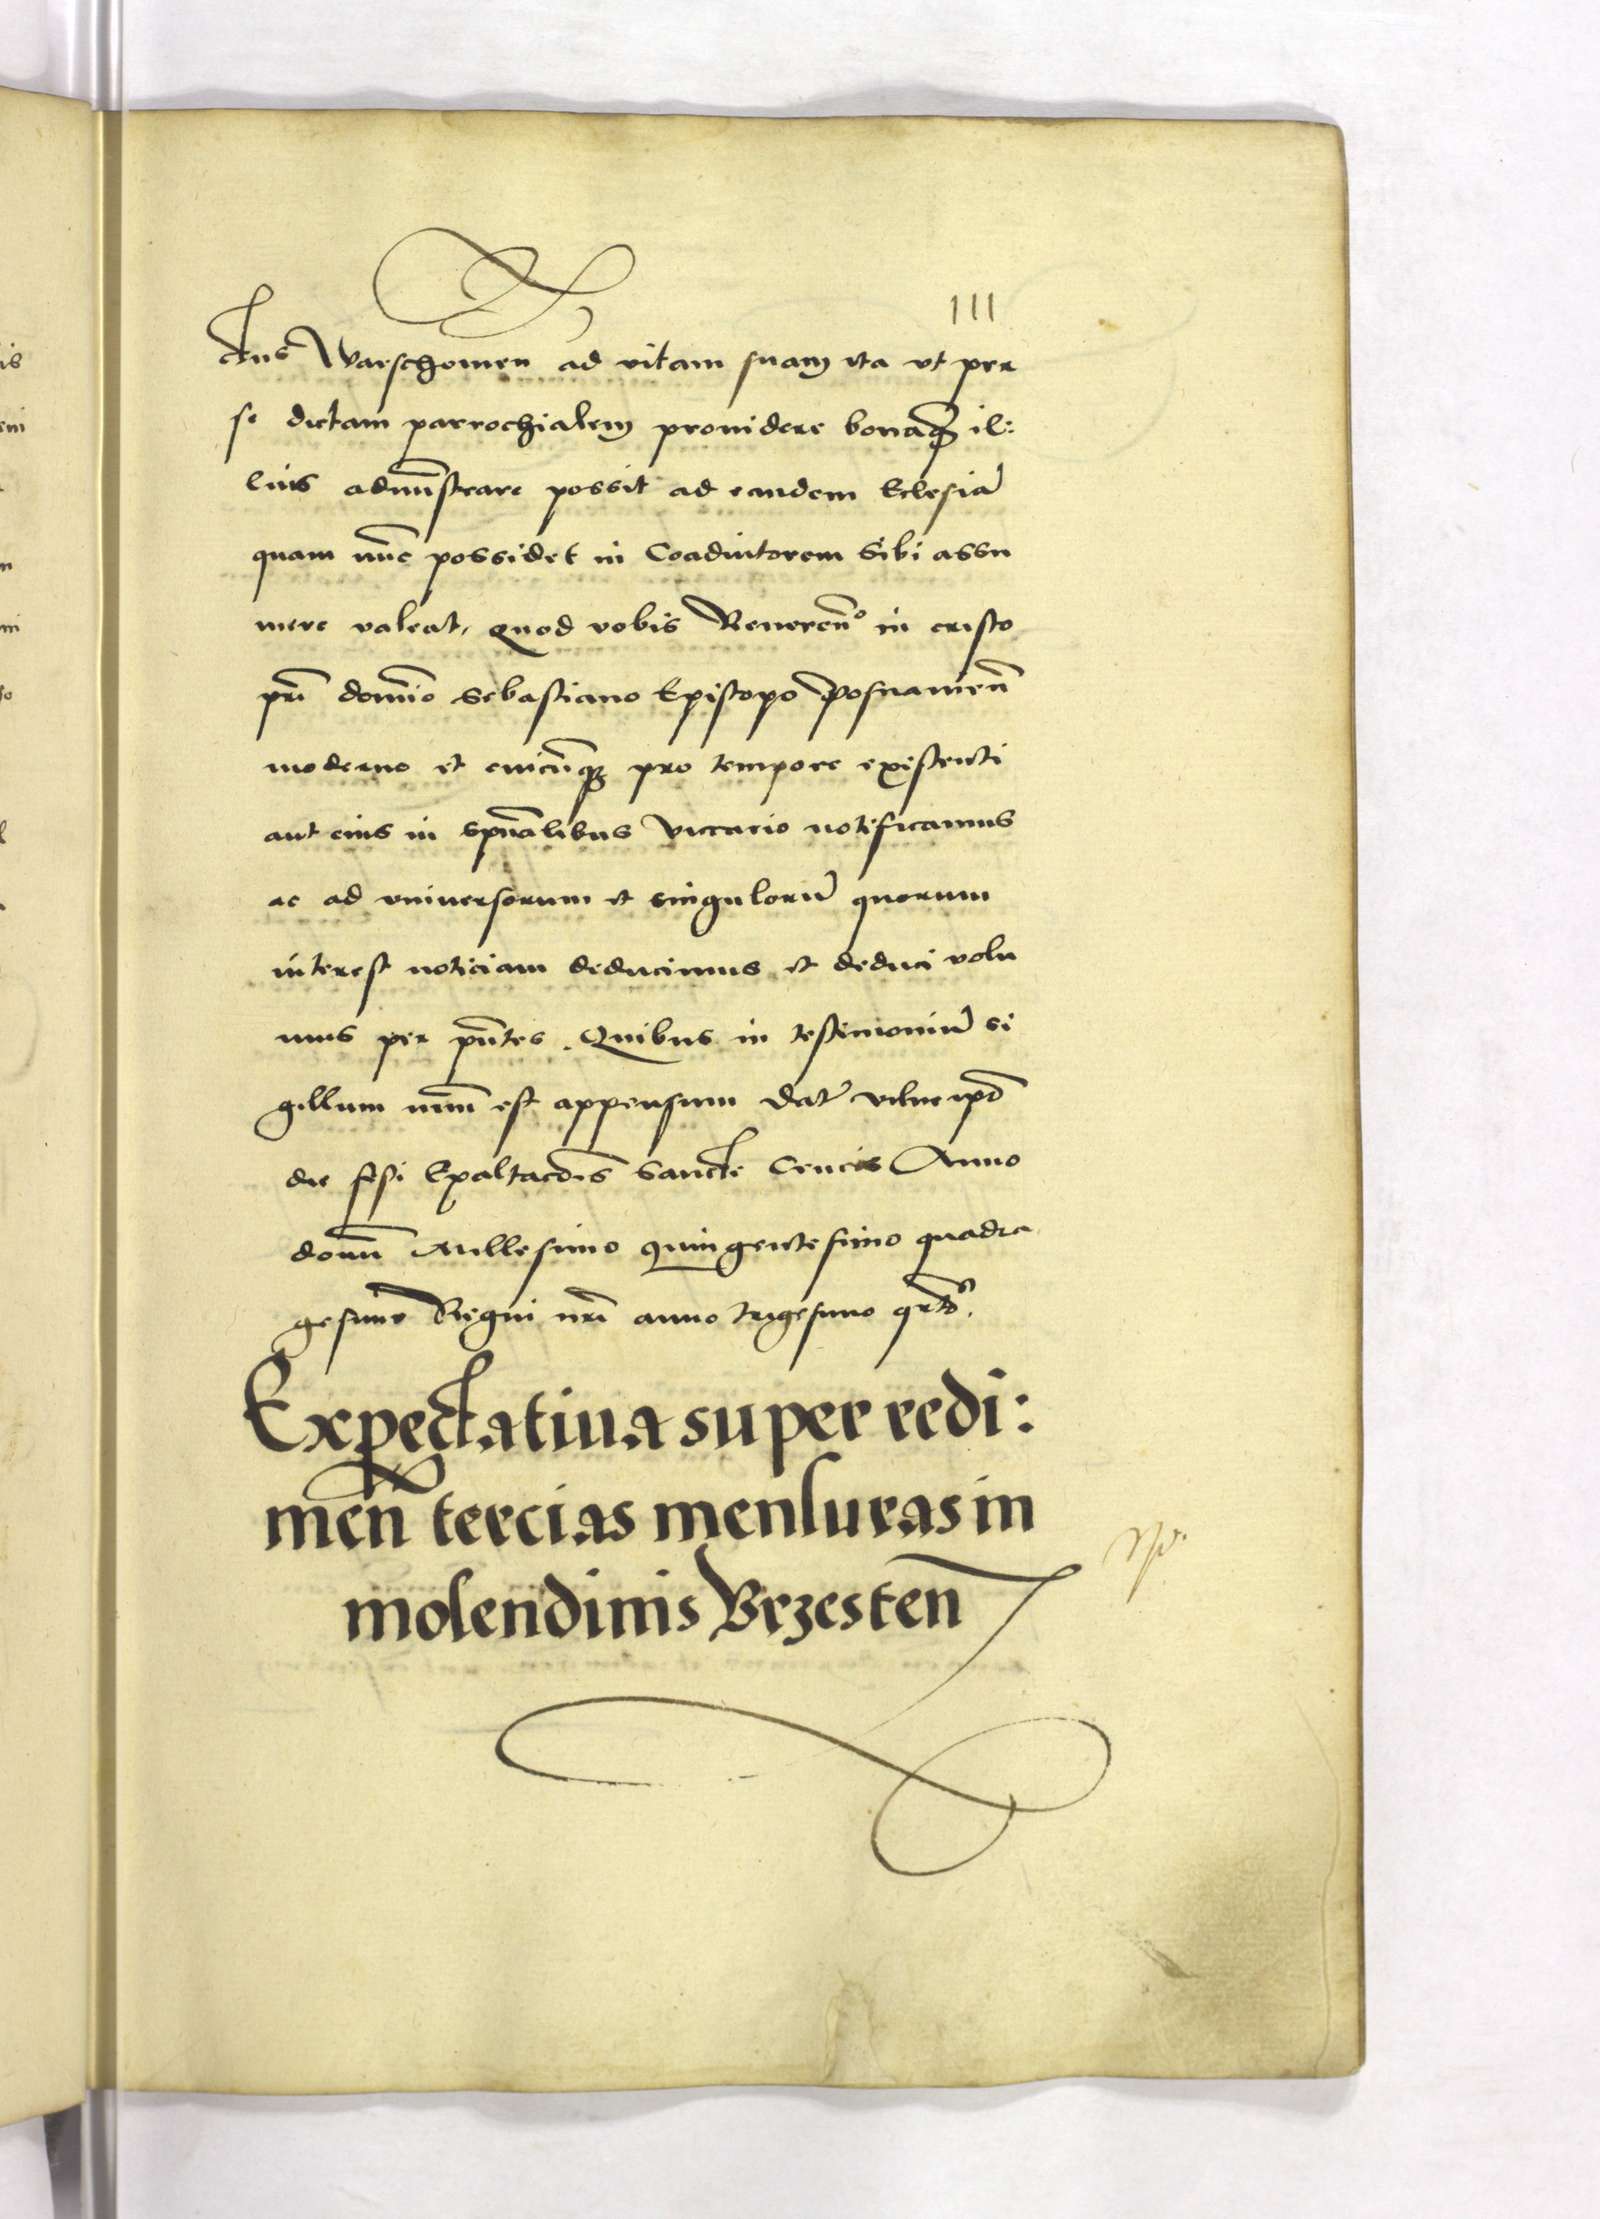 111
ctus Warschouien ad vitam suam ita vt per
se dictam parrochialem prouidere bonaq3 il:
lius adminstrare possit ad eandem Eclesiā
quam nūc possidet in Coadiutorem sibi assu
mere valeat, quod vobis Reuerenō in cristo
pri domīo Sebastiano Episcopo Posnanien̄
moderno et cuicūq3 pro tempore existenti
aut eius in spūalibus viccario notificamus
ac ad vniuersorum et singulorū quorum
interest noticiam deducimus et deduci volu
mus per pn̄tes. Quibus in testimoniū si
gillum nrm̄ est appensum Dat vilne ipō
die festi Exaltacōis Sancte Crucis Anno
domī Millesimo quingentesimo quadra
gesimo Regni nrī anno trigesimo qrto.
Expectatiua super redi:
men̄ tercias mensuras in
molendinis Brzesten̄